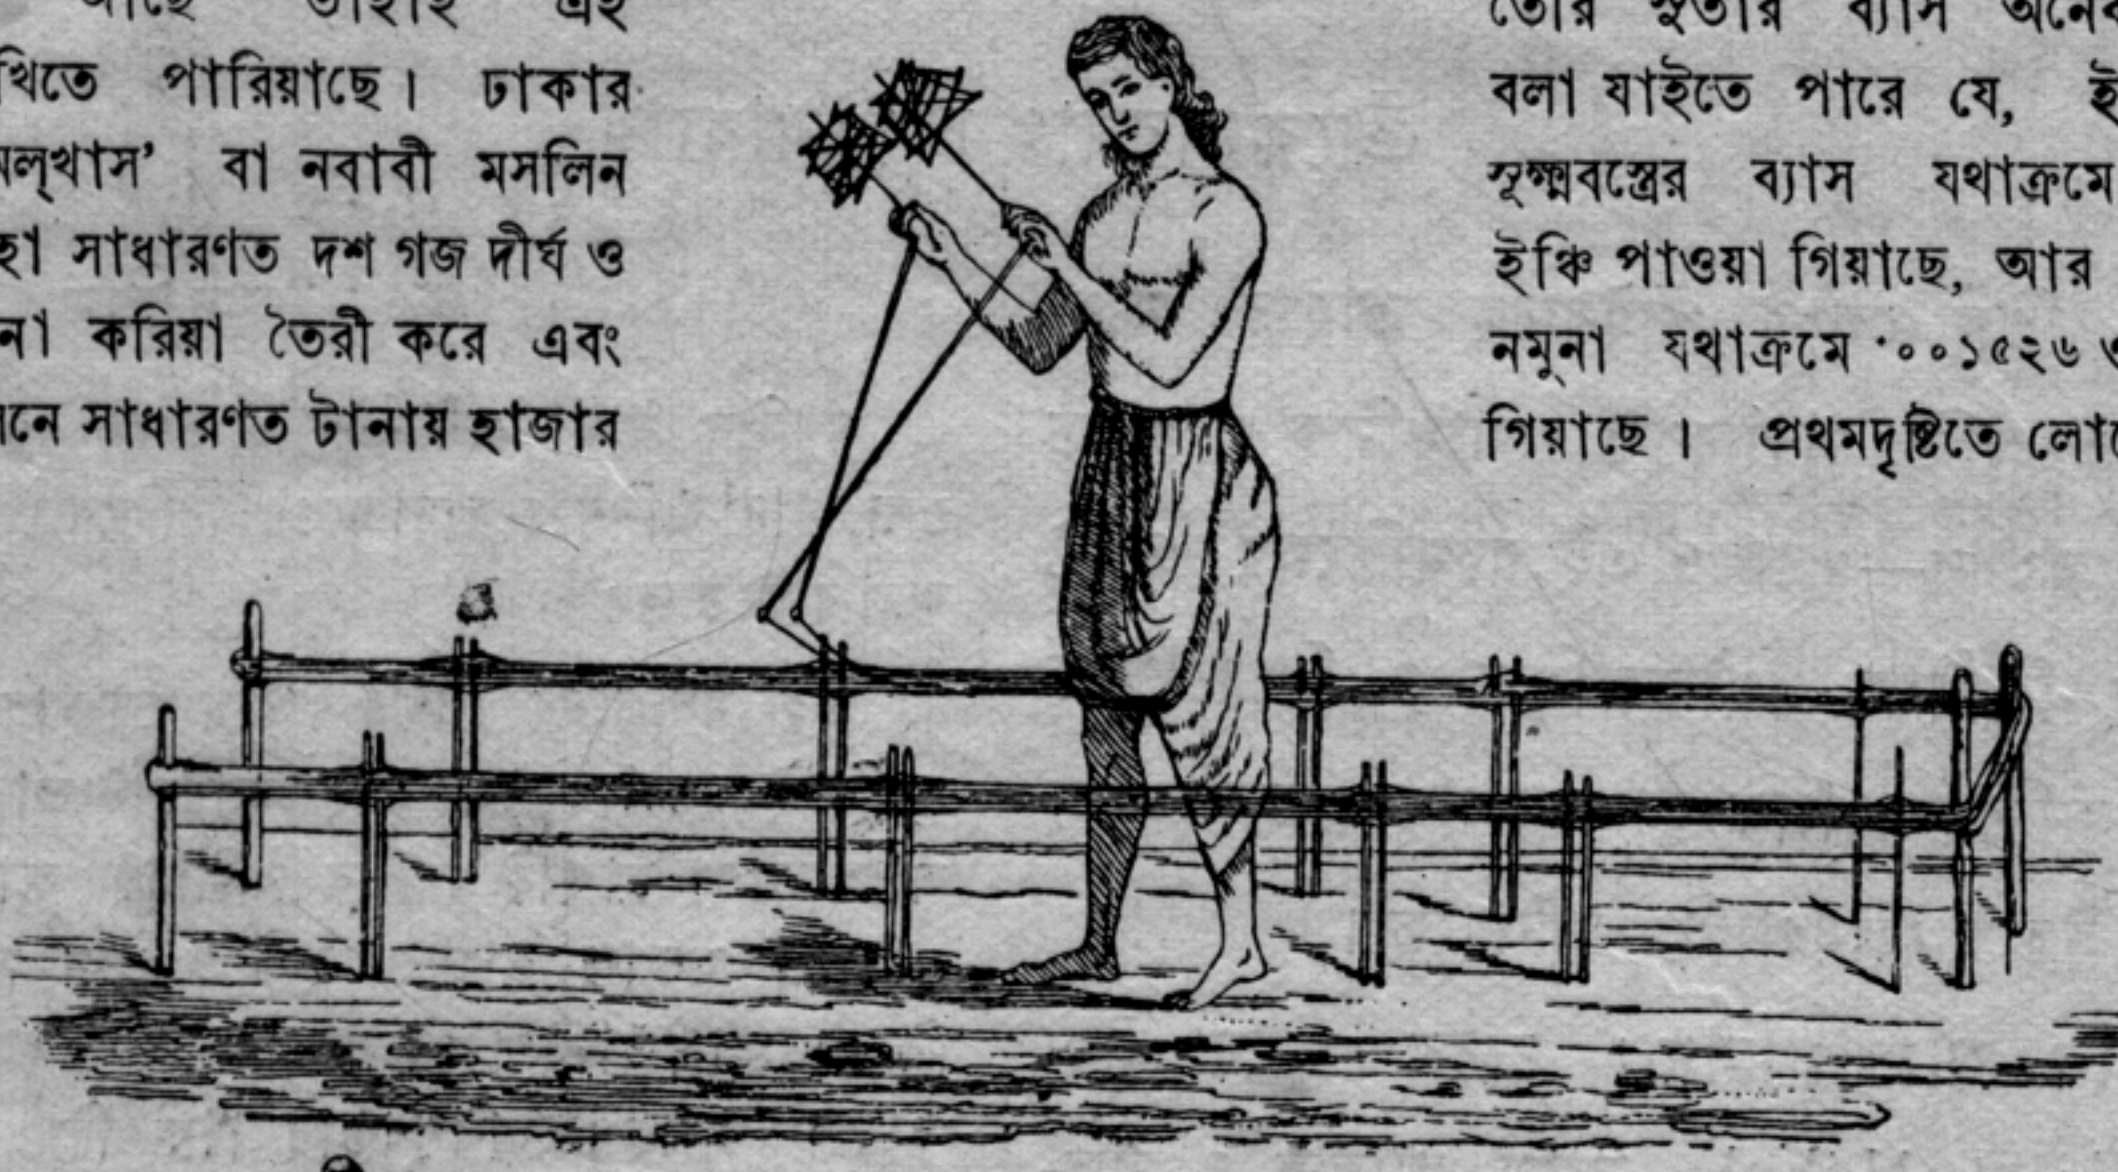 আছে তাহাই এই
খিতে পারিয়াছে। ঢাকার
মল্‌খাস’ বা নবাবী মসলিন
হা সাধারণত দশ গজ দীর্ঘ ও
না করিয়া তৈরী করে এবং
নে সাধারণত টানায় হাজার
তোর সুতার ব্যাস অনেক
বলা যাইতে পারে যে, ই
সূক্ষ্মবস্ত্রের ব্যাস যথাক্রমে
ইঞ্চি পাওয়া গিয়াছে, আর
নমুনা যথাক্রমে ·০০১৫২৬ ও
গিয়াছে। প্রথমদৃষ্টিতে লোে